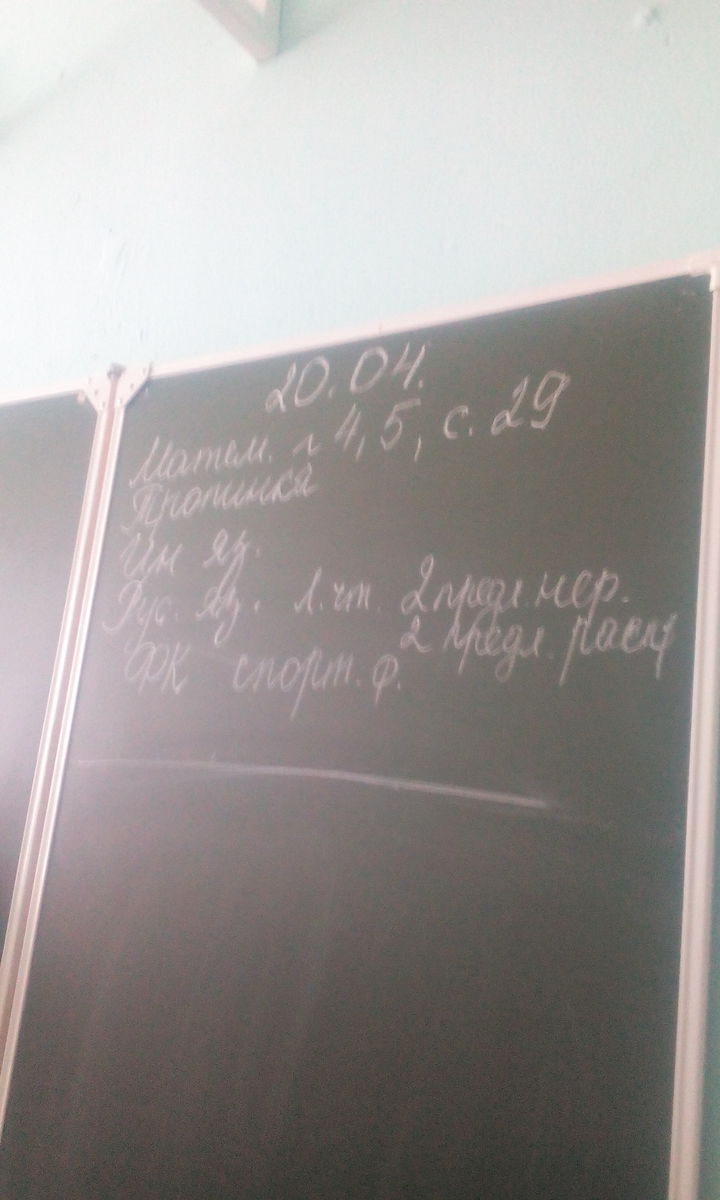 20.04.
Матем. л 4, 5, с. 29
Тропинка
Ин яз.
Рус. яз. л. чт. 2 предл. нер.
2 предл. расп
ФК спорт. ф.